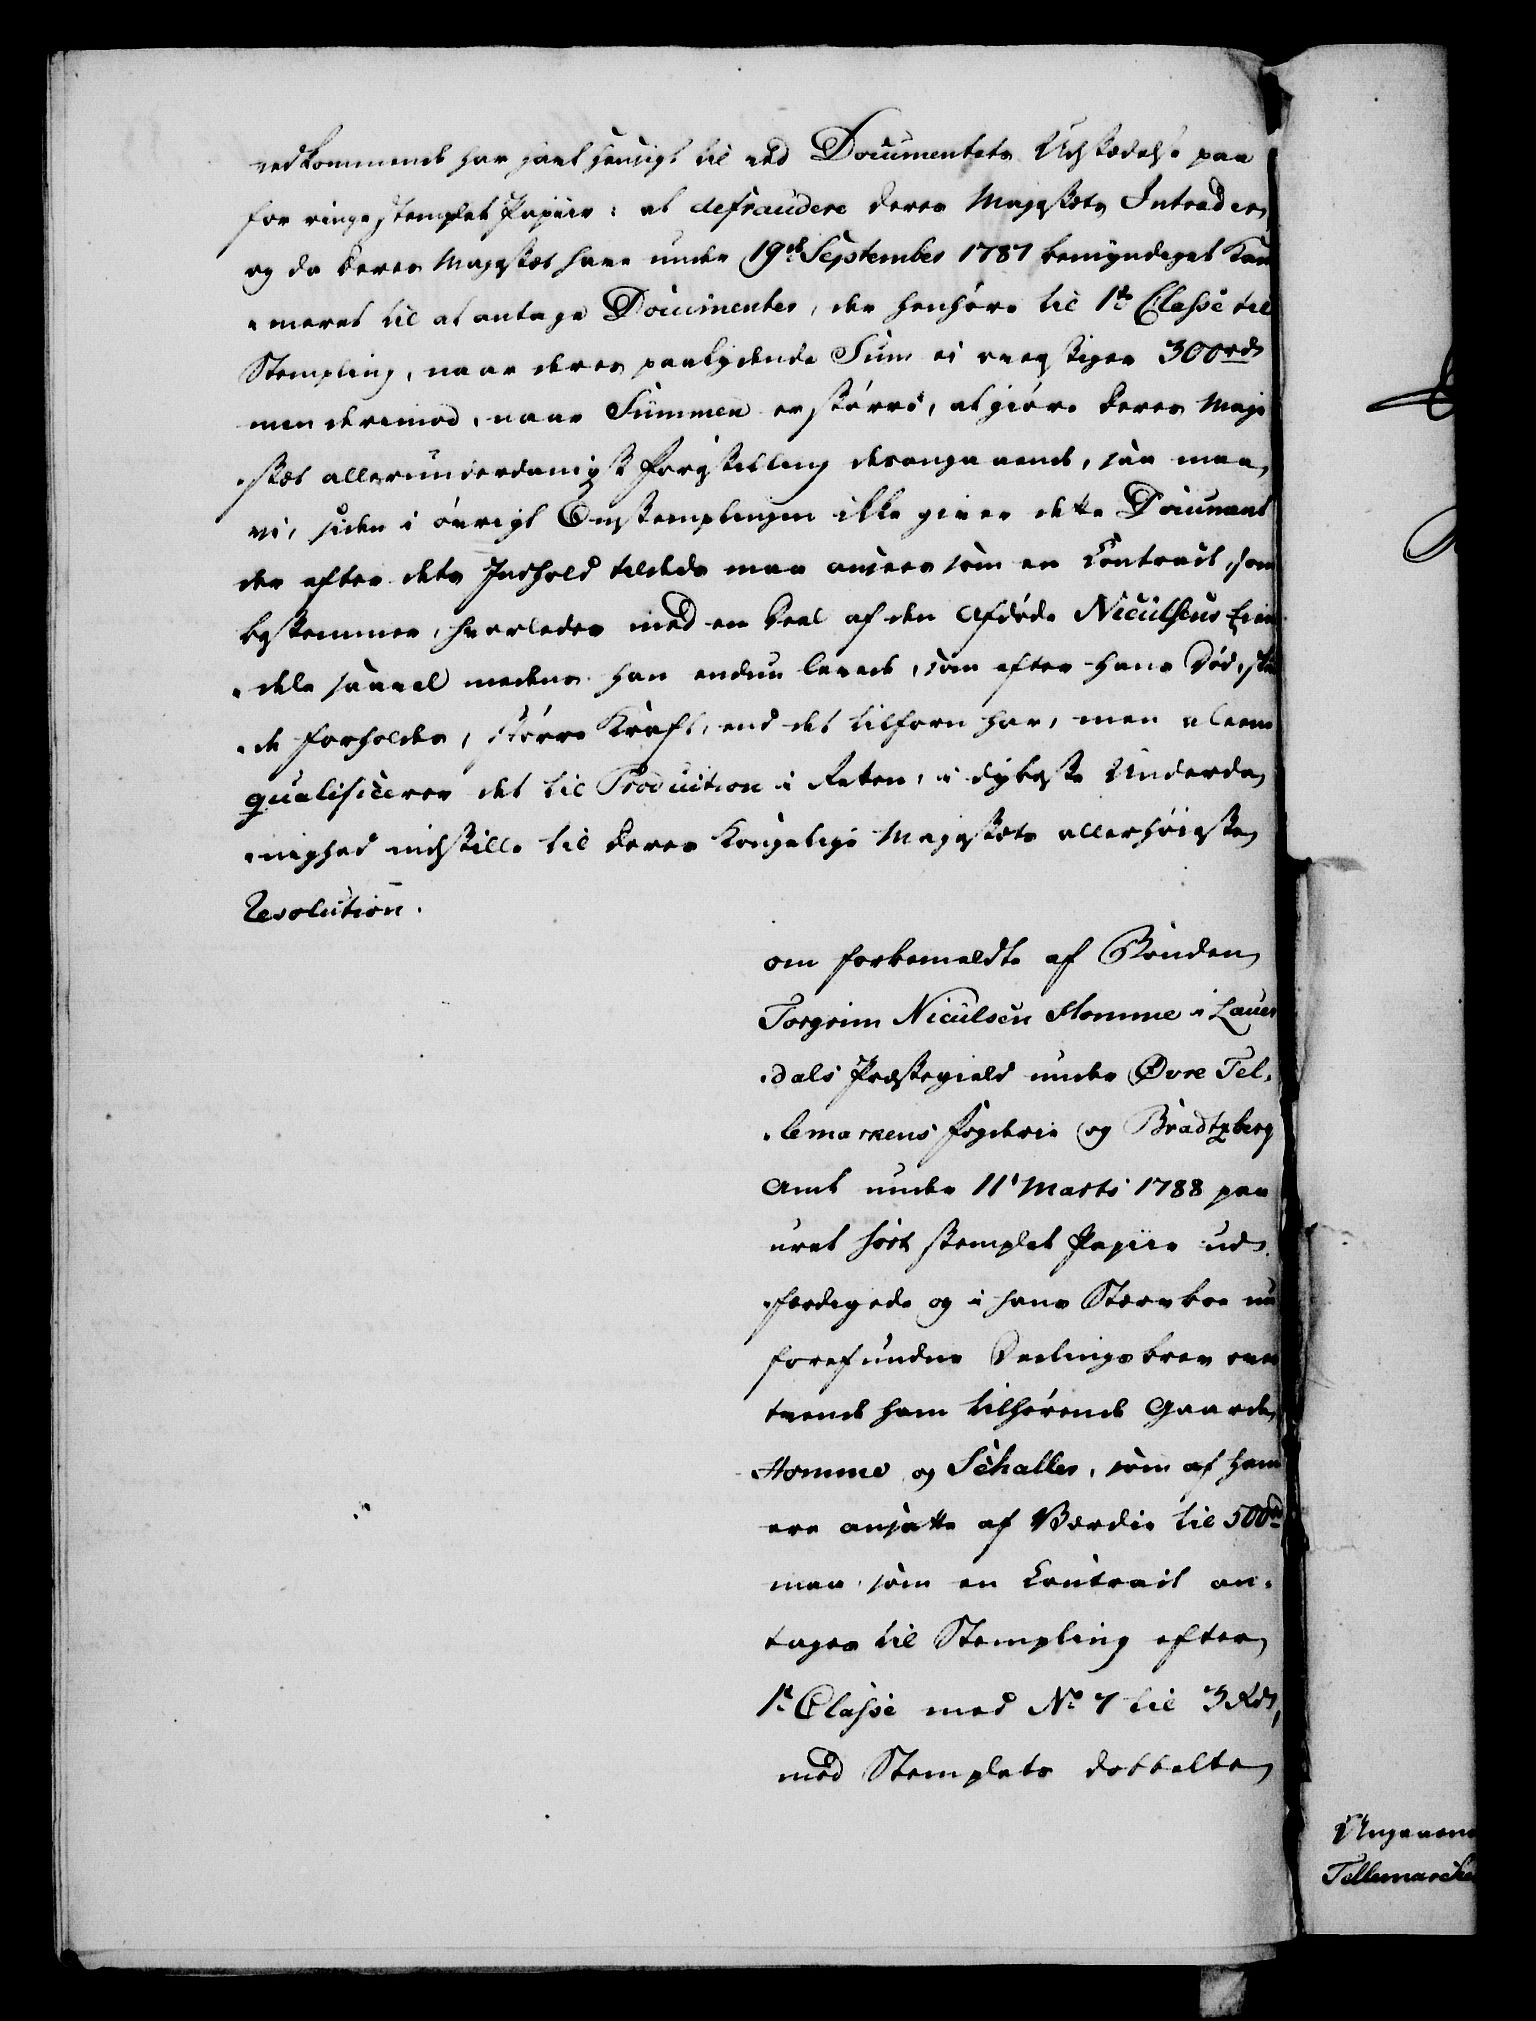 vedkommende har havt Hensigt til ved Documentets Udstædelse paa
for ringe stemplet Papiir: at defraudere Deres Majestæts Intrader,
og da Deres Majestæt have under 19de September 1787 bemyndiget Kam
-meret til at antage Documenter, der henhøre til 1te Classe til
Stempling, naar deres paalydende Sum ei overstiger 300rd
men derimod, naar Summen er større, at giøre Deres Maje
-stæt allerunderdanigst Forestilling desangaaende, saa maae
vi, siden i øvrigt Omstemplingen ikke giver dette Document
der efter dets Indhold tildeels maa ansees som en Contract, som
bestemmer, hvorledes med en Deel af den Afdøde Niculsens Eien
-dele saavel medens han endnu levede, som efter hans Død, skul
-de forholdes, større Kraft, end det tilforn har, men aleene
qualificerer det til Production i Retten, i dybeste Underda
-nighed indstille til Deres Kongelige Majestæts allerhøieste
Resolution.
om forbemeldte af Bonden
Torgrim Niculsen Homme i Laur
-dals Præstegield under Øvre Tel-
-lemarkens Fogderie og Bradtzberg
Amt under 11t Marts 1788 paa
uret sort stemplet Papiir ud-
-færdigede og i hans Stervboe nu
forefundne Deelingsbrev over
tvende ham tilhørende Gaarde
Homme og Schaller, som af ham
ere ansatte af Værdie til 500rd
maa som en Contract an-
tages til Stempling efter
1te Classe med No 7 til 3 Rd,
mod Stemplets dobbelte
Angaaend
Tellemarcke